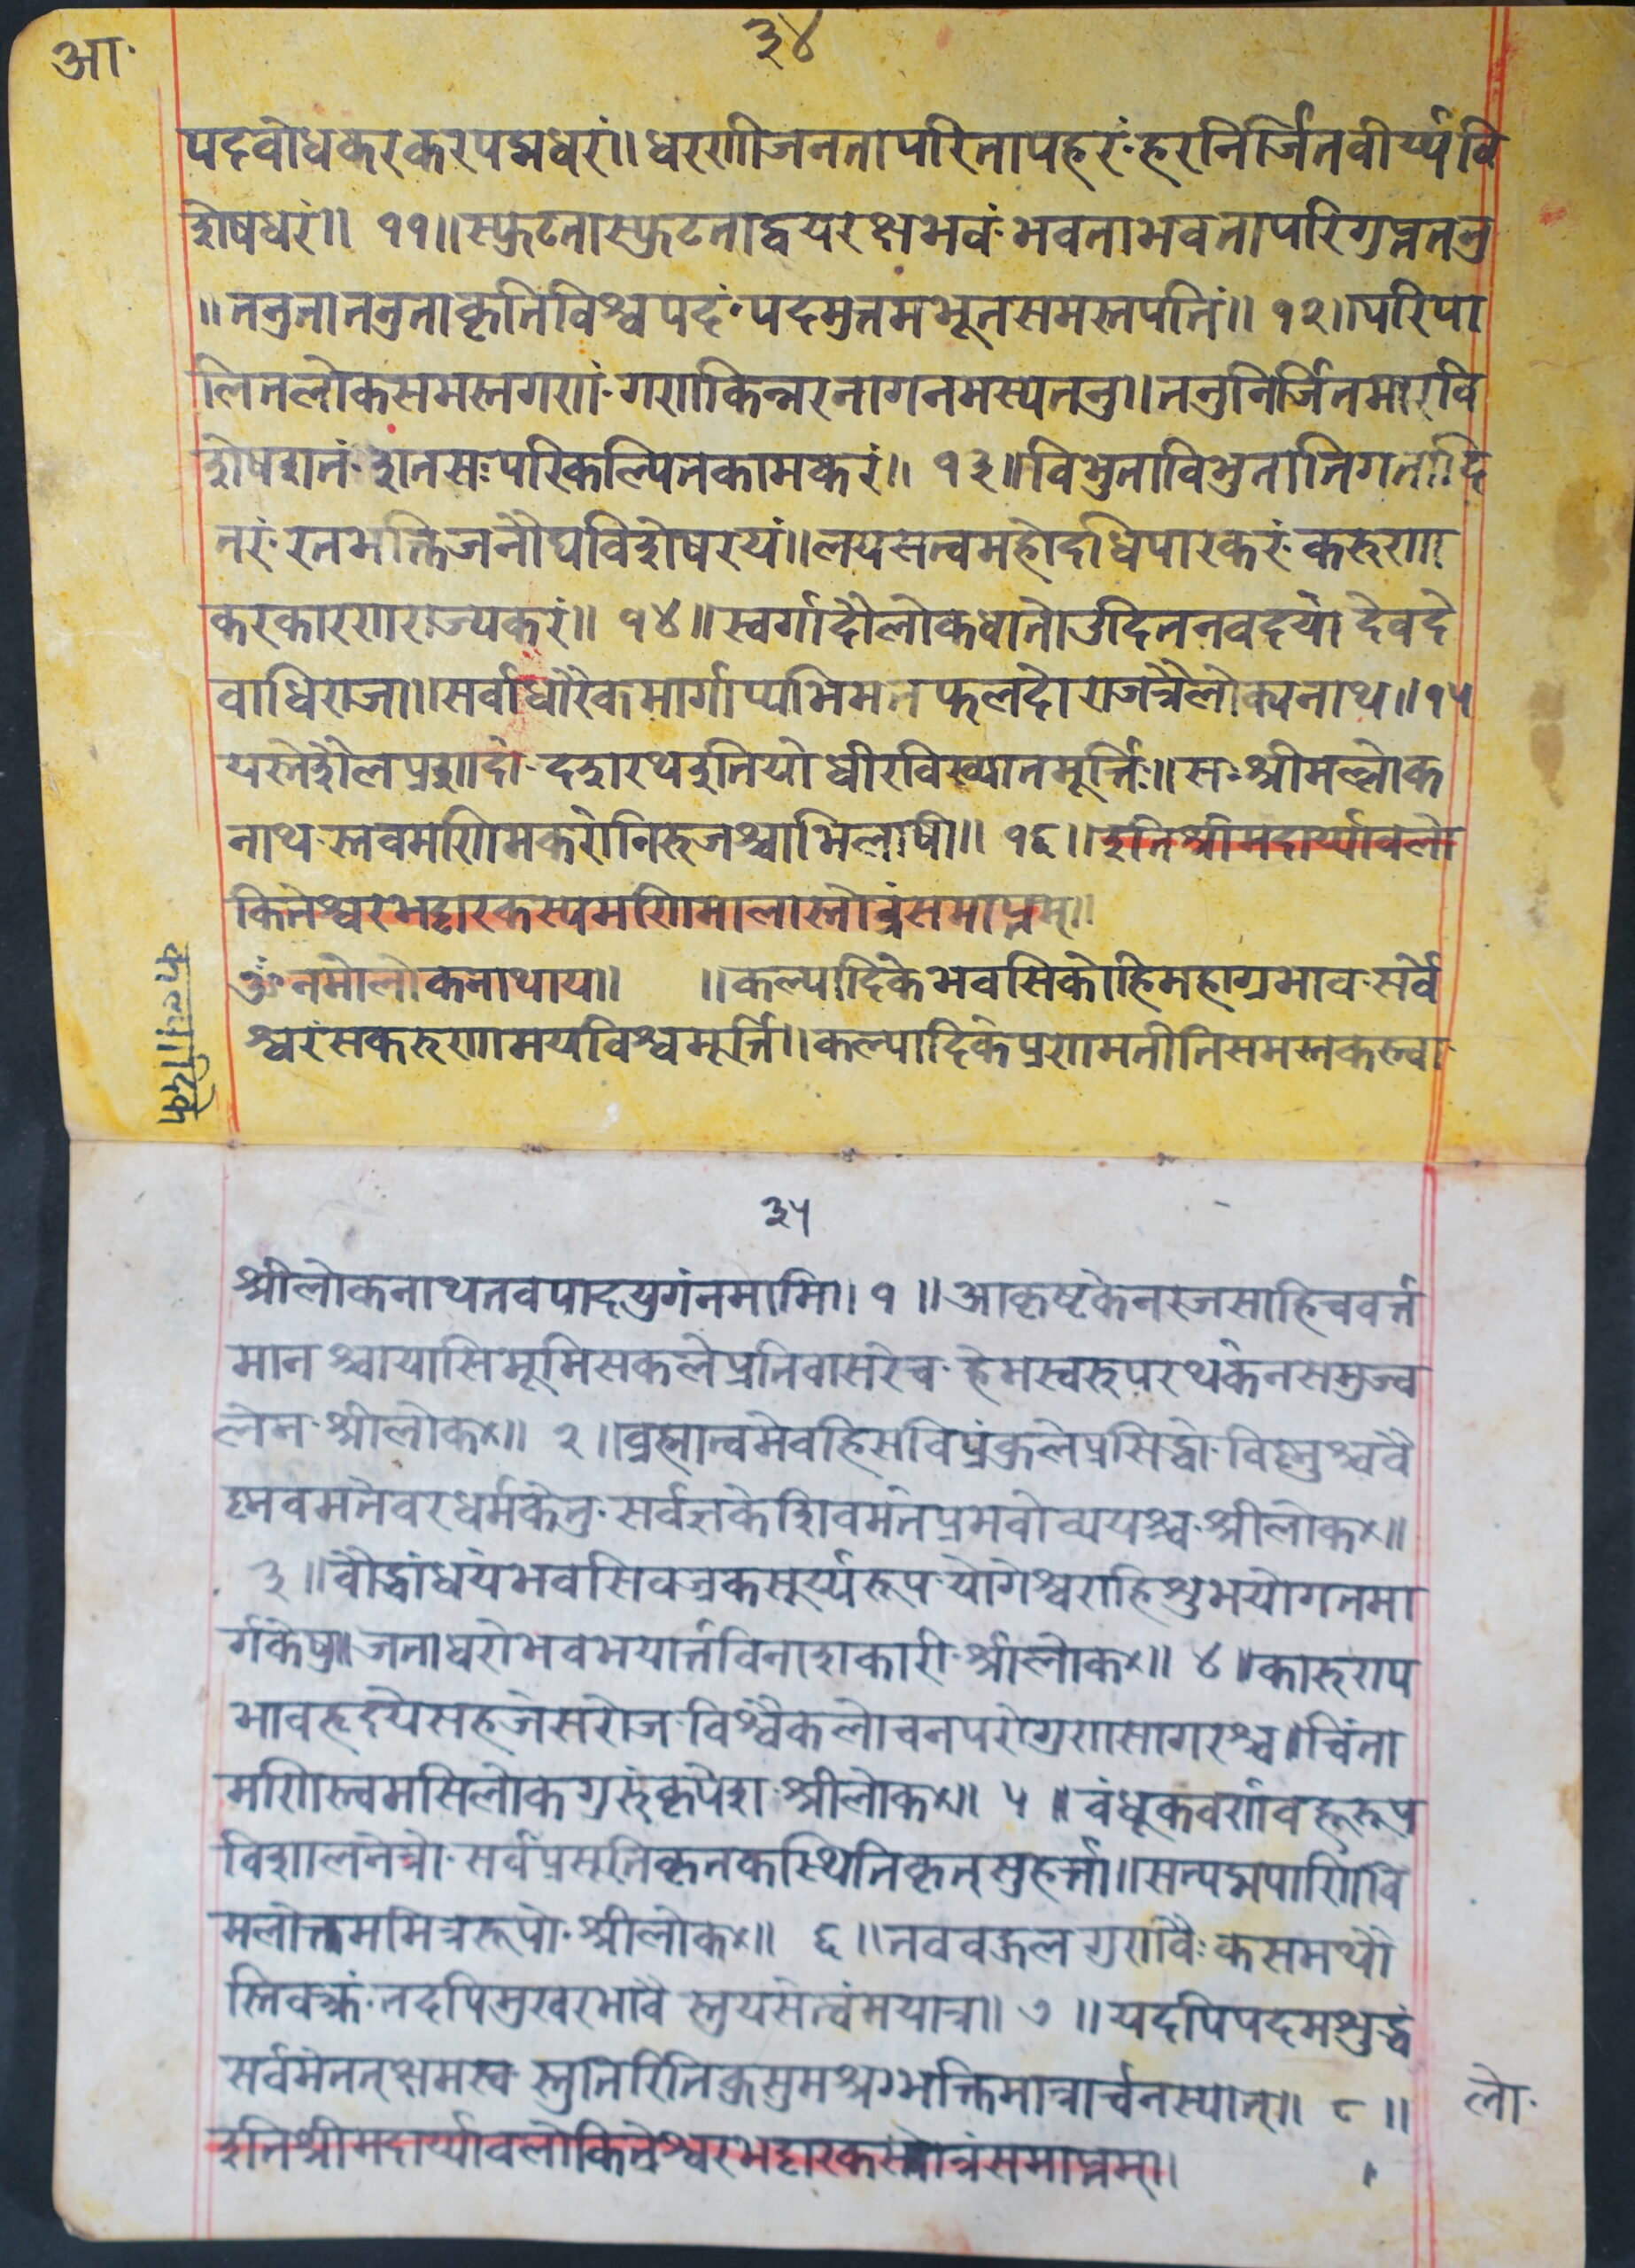 आ·
३४
पदवोधकरकरपद्मधरं॥ धरणीजनतापरितापहरं·हरनिर्जितवीर्य्यवि
शेषधरं॥ ११॥स्फुटतास्फुटताद्वयरक्षभवं·भवताभवतापरिगुप्ततनु
॥तनुतातनुताकृतिविश्वपदं·पदमुत्तमभूतसमस्तपतिं॥ १२॥परिपा
लितलोकसमस्तगणं·गणकिन्नरनागनमस्येतनु॥तनुनिर्जितमारवि
शेषशतं·शतसःपरिकल्पितकामकरं॥ १३॥विभुनाविभुतातिगतादि
तरं·रतभक्तिजनौघविशेषरयं॥लयसत्वमहोदधिपारकरं·करुणा
करकारणराज्यकरं॥ १४॥स्वर्गादौलोकधातोउदितनवदयो देवदे
वाधिराजा॥सर्वाधारैकमार्गाप्यभिमतफलदो राजत्रैलोक्यनाथ॥१५
यस्तेशैलप्रशादो·दशरथशुनियोधीरविख्यातमूर्त्तिः॥सःश्रीमल्लोक
नाथ·स्तवमणिमकरोनिरुजश्चाभिलाषी॥ १६॥इतिश्रीमदार्य्यावलो
कितेश्वरभट्टारकस्यमणिमालास्तोत्रंसमाप्तम्॥
ॐनमोलोकनाथाय॥ ॥कल्पादिकेभवसिकोहिमहाप्रभाव·सर्वे
श्वरंसकरुणामयविश्वमूर्त्ति॥कल्पादिकेप्रणमतीतिसमस्तकस्त्वा·
कल्पादिके
३५
श्रीलोकनाथतवपादयुगंनमामि॥ १ ॥आकृष्टकेनरजसाहिचवर्त्त
मानश्चायासिभूमिसकलेप्रतिवासरेच·हेमस्वरुपरथकेनसमुज्व
लेन·श्रीलोक×॥ २॥व्रह्मात्वमेवहिसविप्रंकुलेप्रसिद्धो·विष्नुश्चवै
ष्नवमतेवरधर्मकेतु·सर्वज्ञकेशिवमतेप्रभवोव्ययश्च·श्रीलोक×॥
३॥वौद्धांधयेभवसिवज्रकसूर्य्यरूप·योगेश्वराहिशुभयोगतमा
र्गकेषु॥जनाधरोभवभयार्त्तविनाशकारी·श्रीलोक×॥ ४॥कारुणप
भावहृदयेसहजेसरोज·विश्वैकलोचनपरोगुणसागरश्च॥चिंता
मणिस्त्वमसिलोकगुरुंकृपेश·श्रीलोक×॥ ५ ॥वंधूकवर्णवहूरूप
विशालनेत्रो·सर्वप्रसूतिकृतकस्थितिकृत्सुहर्त्ता॥सत्पद्मपाणिवि
मलोत्तममित्ररूपो·श्रीलोक×॥ ६॥तववहुलगुणावैःकसमर्थो
स्तिवक्तुं·तदपिमुखरभावै स्तुयसेत्वंमयात्र॥ ७ ॥यदपिपदमशुद्धं
सर्वमेतत्क्षमस्व·स्तुतिरितिकुसुमश्रग्भक्तिमात्रार्चनस्यात्॥ ८ ॥
इतिश्रीमदार्य्यावलोकितेश्वरभट्टारकस्तोत्रंसमाप्तम्।
लो·